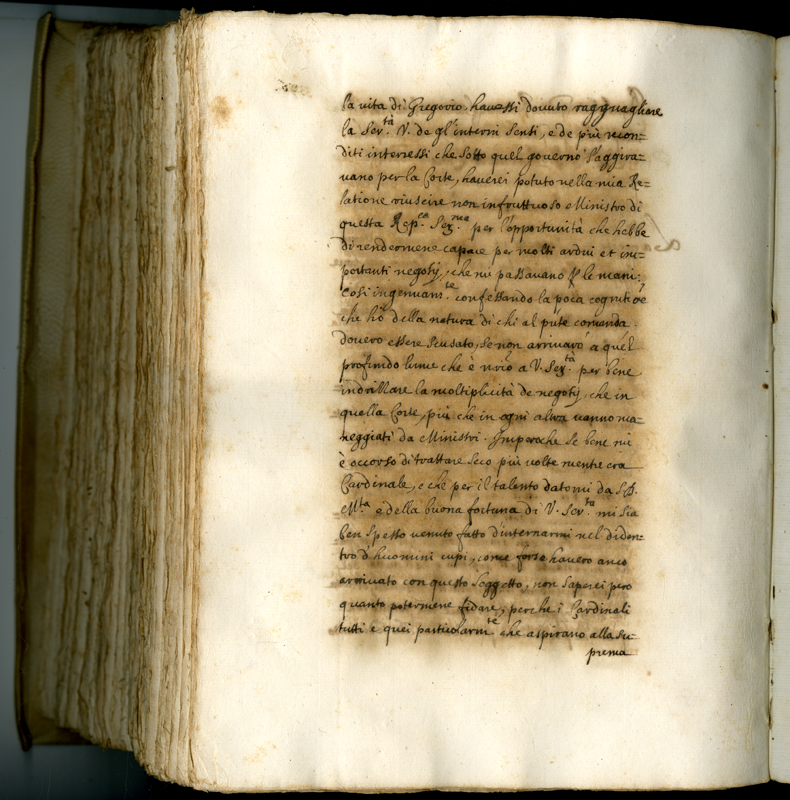 la vita di Gregorio, havessi douuto ragguagliare
la Ser.tà V. de gl'interni sensi, e de più recon=
diti interessi che sotto quel governo s'aggira=
uano per la Corte, hauerei potuto nella mia Re=
latione riuscire non infruttuoso Ministro di
questa Rep.ca Ser.ma per l'opportunità che hebbe
di rendermene capace per molti ardui et im=
portanti negotij, che mi passauano p le mani;
Così ingenuam.te confessando la poca cognitiõe
che hò della natura di chi al pñte comanda.
douerò essere scusato, se non arriuarò a quel
profondo lume che è a V. Ser.tà per bene
indrizzare la moltiplicità de negotij, che in
quella Corte, più che in ogni altra uanno ma=
neggiati da Ministri. Imperoche se bene mi
è occorso di trattare seco più uolte mentre era
Cardinale, e che per il talento datomi da S.D.
M.ta e della buona fortuna di V. Ser.ta mi sia
ben spesso uenuto fatto d'internarmi nel diden=
tro d'huomini cupi, come forse hauerò anco
arriuato con questo soggetto, non saperei però
quanto potermene fidare, perche i Cardinali
tutti e quei particolarm.te che aspirano alla su=
prema